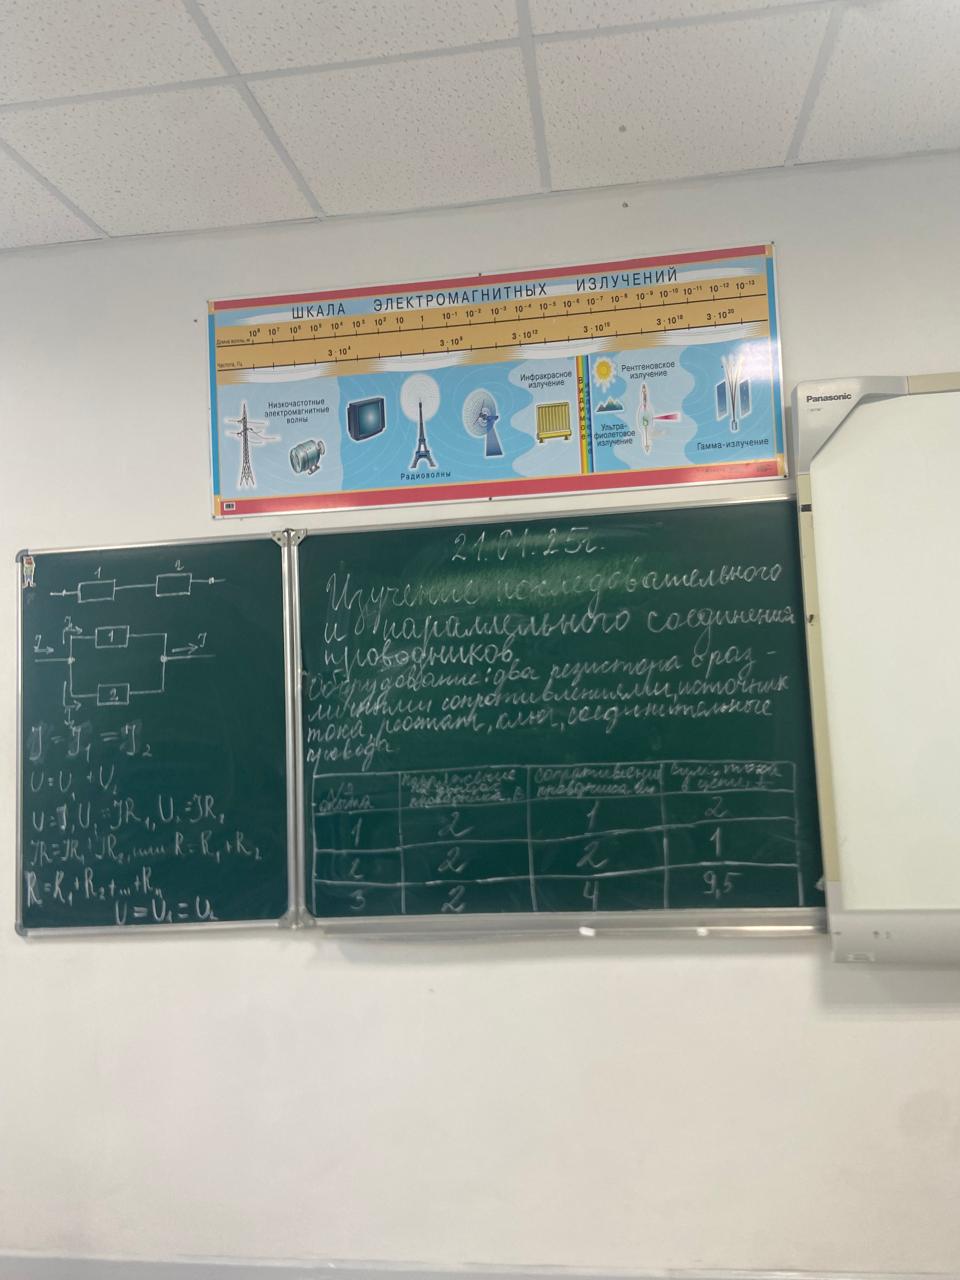 ШКАЛА ЭЛЕКТРОМАГНИТНЫХ ИЗЛУЧЕНИЙ
Длина волны, м
10⁸ 10⁷ 10⁶ 10⁵ 10⁴ 10³ 10² 10 1 10⁻¹ 10⁻² 10⁻³ 10⁻⁴ 10⁻⁵ 10⁻⁶ 10⁻⁷ 10⁻⁸ 10⁻⁹ 10⁻¹⁰ 10⁻¹¹ 10⁻¹² 10⁻¹³
Частота, Гц
3·10⁴ 3·10⁸ 3·10¹² 3·10¹⁵ 3·10¹⁸ 3·10²⁰
Низкочастотные
электромагнитные
волны
Радиоволны
Инфракрасное
излучение
Ультра-
фиолетовое
излучение
Рентгеновское
излучение
Гамма-излучение
Panasonic
1 2
1
2
J = J₁ = J₂
U = U₁ + U₂
U₁ = JR₁, U₂ = JR₂
JR = JR₁ JR₂, или R = R₁ + R₂
R = R₁ + R₂ + ... + Rₙ
U = U₁ = U₂
21.01.25г.
Изучение последовательного
и параллельного соединения
проводников.
Оборудование: два резистора с раз-
личными сопротивлениями, источник
тока, реостат, ключ, соединительные
провода
№ опыта | напряжение на концах проводника, В | сопротивление проводника, Ом | сила тока в цепи, А
1 2 1 2
2 2 2 1
3 2 4 9,5